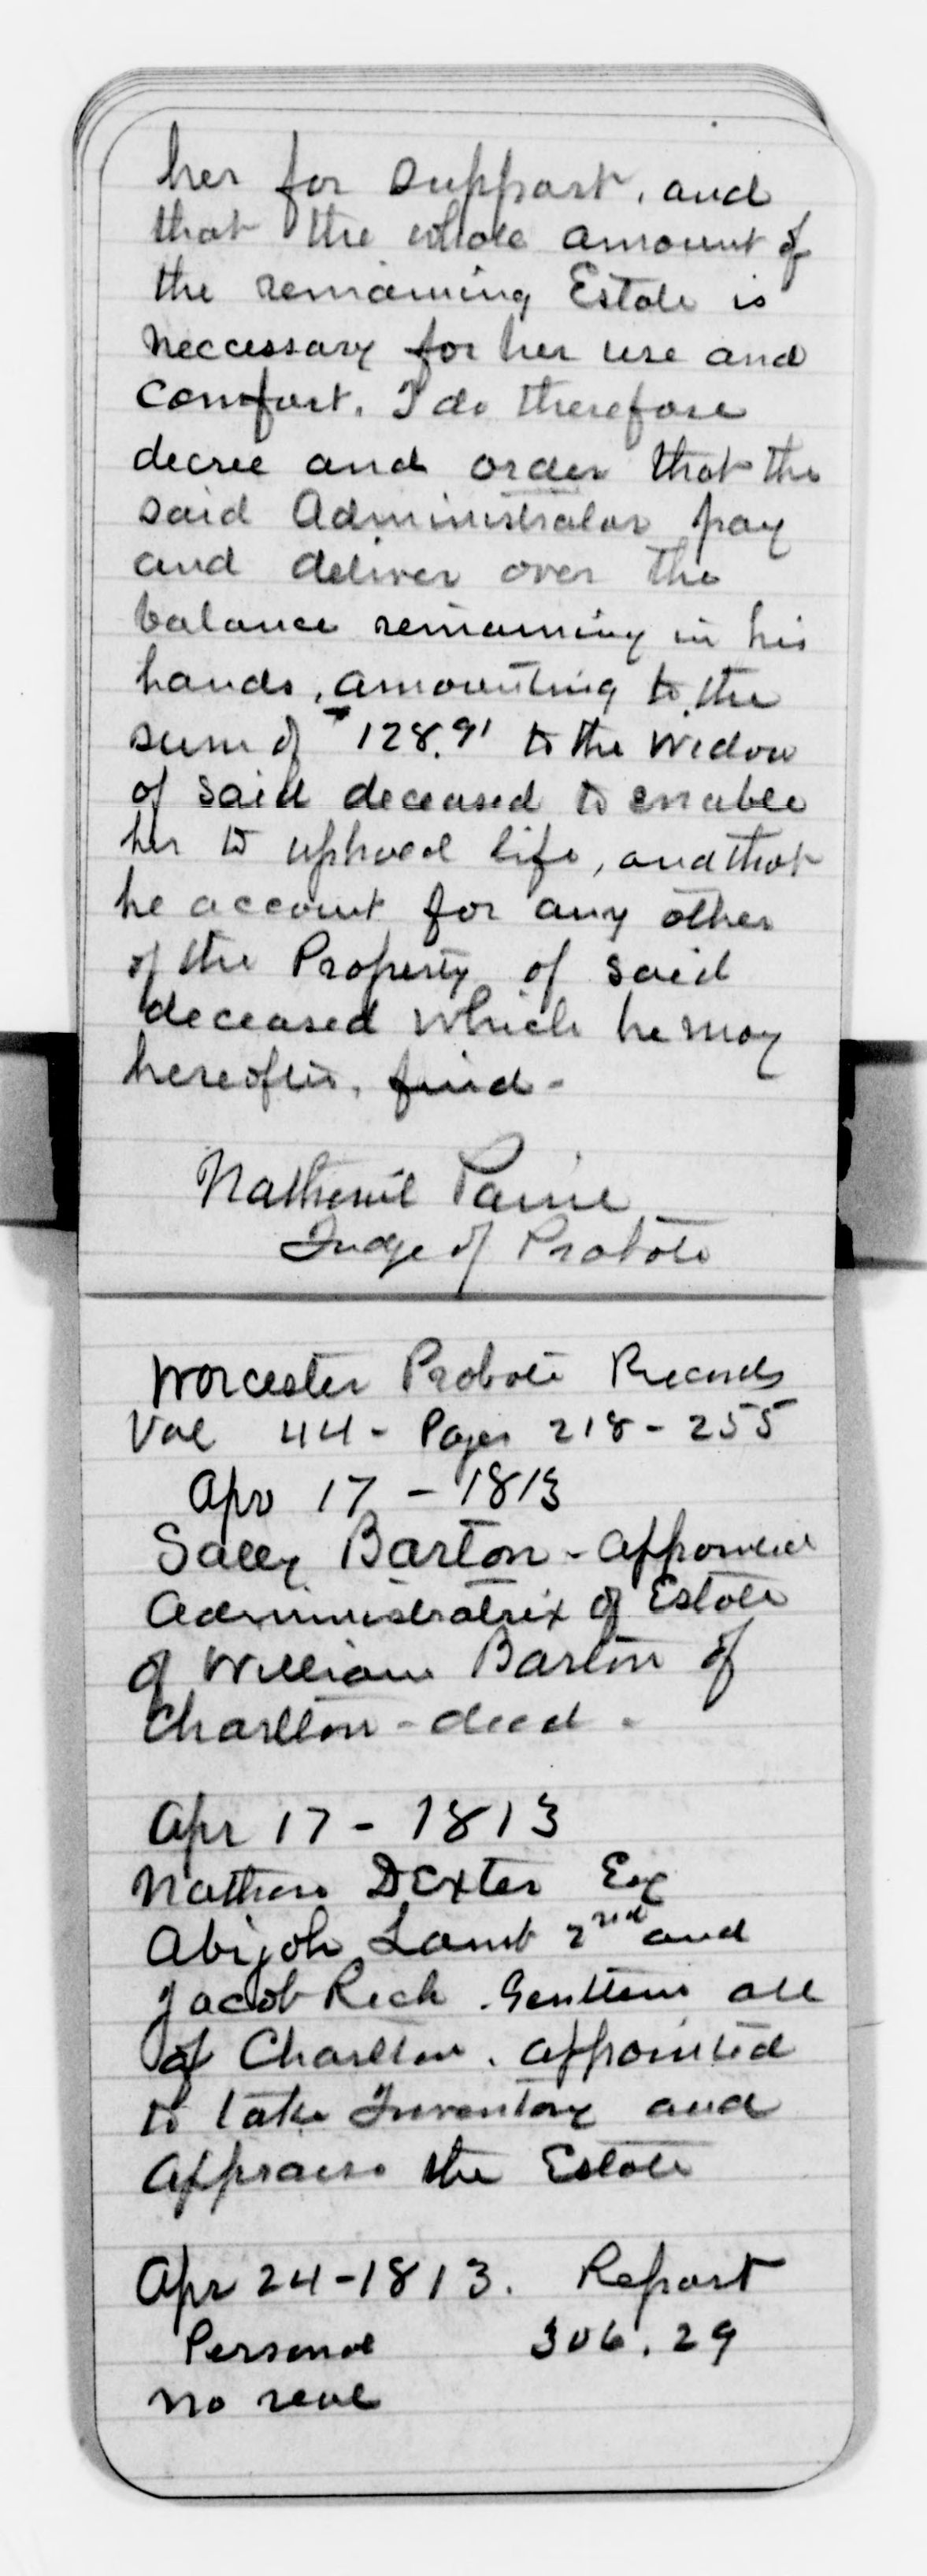 her for support, and
that the whole amount of
the remaining Estate is
neccessary for her use and
comfort. I do therefore
decree and order that the
said Administrator pay
and deliver over the
balance remaining in his
hands, amounting to the
sum of 128.91 to the widow
of said deceased to enable
her to uphold life, and that
he account for any other
of the Property of said
deceased which he may
hereafter, find -
Nathaniel Paine
Judge of Probate
Worcester Probate Records
Vol 44 - Pages 218 - 255
Apr 17 - 1813
Sally Barton - appointed
Administratrix of Estate
of William Barton of
Charlton - decd -
Apr 17 - 1813
Nathan Dexter Esq
Abijah Lamb 2nd and
Jacob Rich . Gentlem all
of Charlton . appointed
to take Inventory and
Appraise the Estate
Apr 24 - 1813 . Report
Personal 306.29
no real